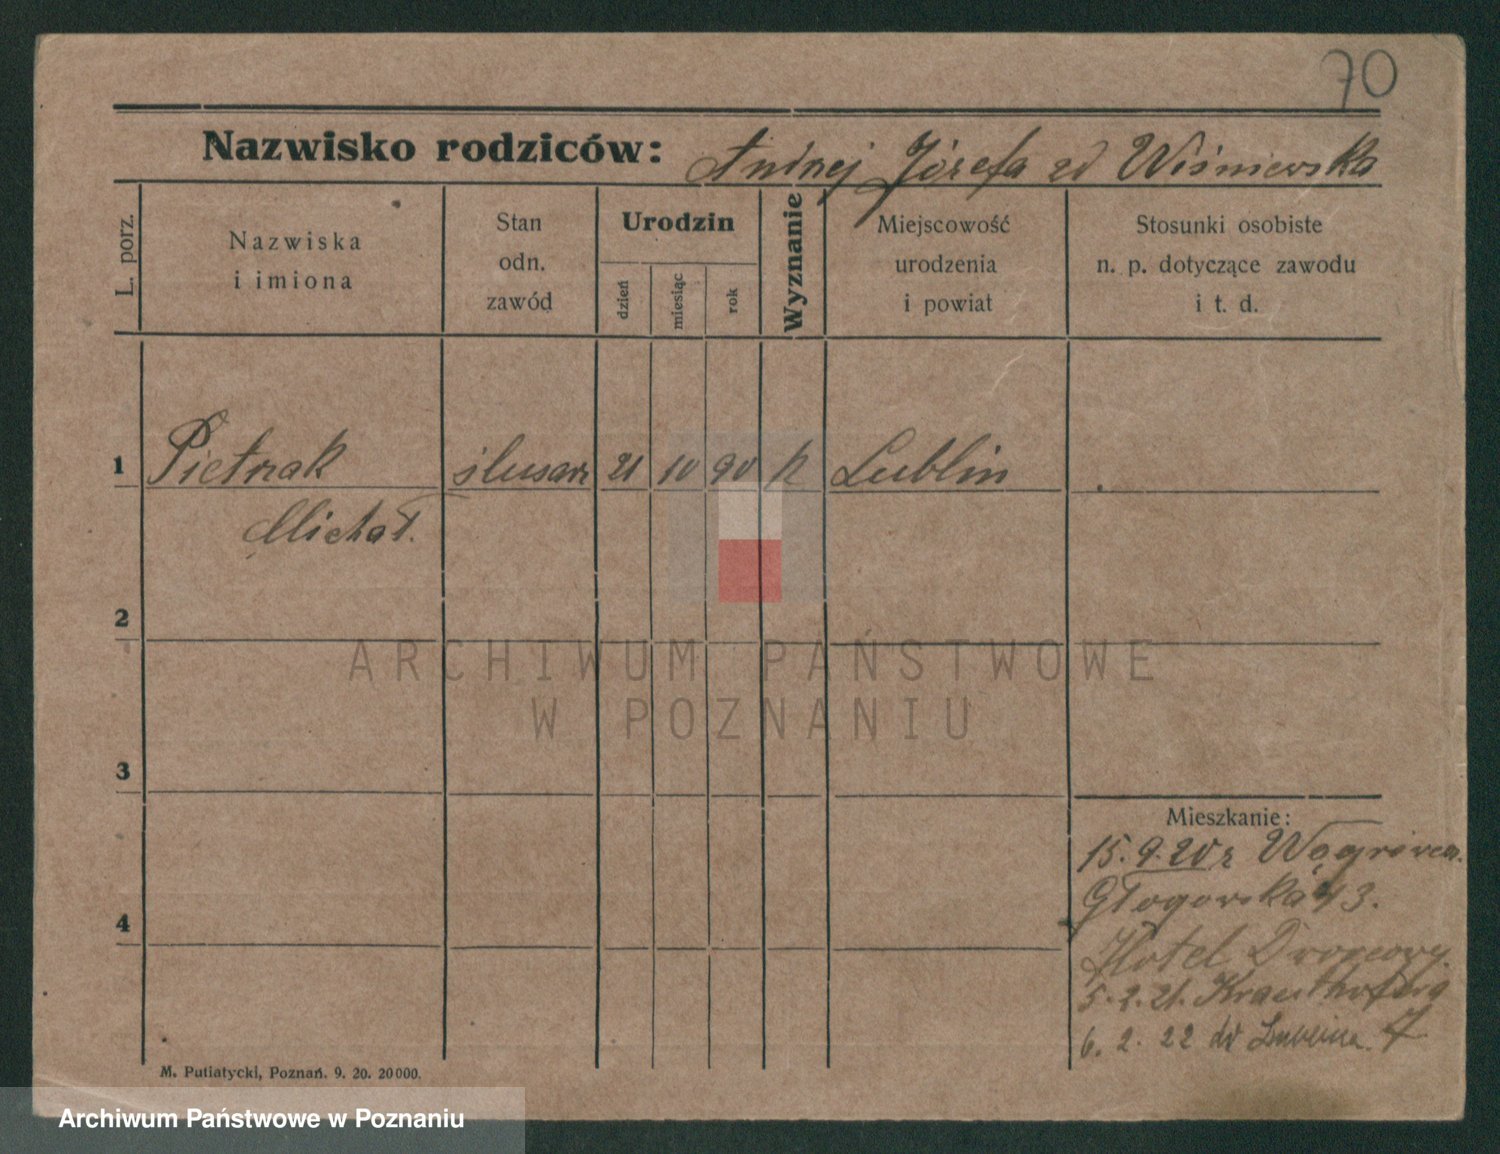 70
Nazwisko rodziców: Andrzej Józefa zd Wiśniewska
L. porz.
Nazwiska
i imiona
Stan
odn.
zawód
Urodzin
dzień
miesiąc
rok
Wyznanie
Miejscowość
urodzenia
i powiat
Stosunki osobiste
n. p. dotyczące zawodu
i t. d.
1 Pietrzak ślusarz 21 10 90 k Lublin
Michał.
2
3
4
Mieszkanie:
15. 9. 20 z Wągrowca.
Głogowska 43.
Hotel Dworcowy.
5. 2. 21. Krauthofera 7
6. 2. 22 do Lublina.
M. Putiatycki, Poznań. 9. 20. 20000.
ARCHIWUM PAŃSTWOWE
W POZNANIU
Archiwum Państwowe w Poznaniu